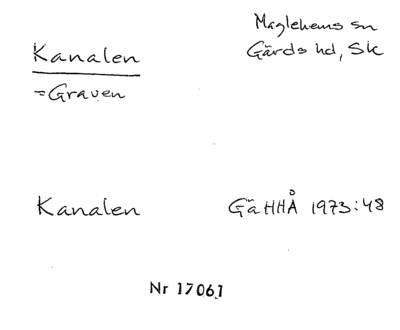 Maglehems sn
Kanalen
Gärds hd, Sk
=Graven
Kanalen GäHHÅ 1973:48
Nr 17061